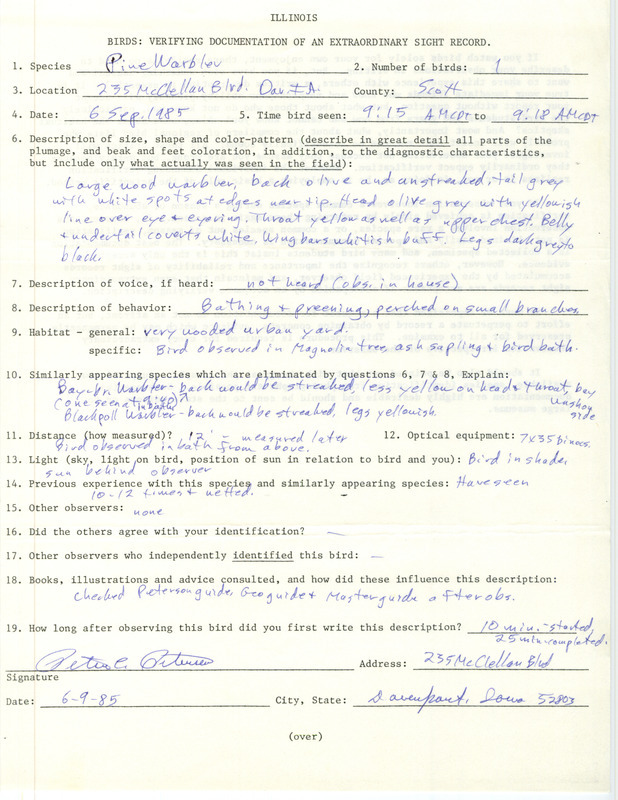 ILLINOIS
BIRDS: VERIFYING DOCUMENTATION OF AN EXTRAORDINARY SIGHT RECORD.
1. Species Pine Warbler 2. Number of birds: 1
3. Location 235 McClellan Blvd. Dav. IA County: Scott
4. Date: 6 Sep. 1985 5. Time bird seen: 9:15 AMCDT to 9:18 AMCDT
6. Description of size, shape and color-pattern (describe in great detail all parts of the
plumage, and beak and feet coloration, in addition, to the diagnostic characteristics,
but include only what actually was seen in the field):
Large wood warbler, back olive and unstreaked, tail grey
with white spots at edges near tip. Head olive grey with yellowish
line over eye & eyering. Throat yellow as well as upper chest. Belly
& undertail coverts white. Wing bars whitish buff. Legs dark grey to
black.
7. Description of voice, if heard: not heard (obs. in house)
8. Description of behavior: Bathing & preening, perched on small branches
9. Habitat - general: very wooded urban yard.
specific: Bird observed in Magnolia tree, ash sapling & bird bath.
10. Similarly appearing species which are eliminated by questions 6, 7 & 8, Explain:
Bay-br. Warbler - back would be streaked, less yellow on head & throat, bay
(one seen at 9:40) in bath wash on side
Blackpoll Warbler - back would be streaked, legs yellowish.
11. Distance (how measured)? 12' - measured later 12. Optical equipment: 7x35 binocs.
Bird observed in bath from above.
13. Light (sky, light on bird, position of sun in relation to bird and you): Bird in shade,
sun behind observer
14. Previous experience with this species and similarly appearing species: Have seen
10-12 times & netted.
15. Other observers: none
16. Did the others agree with your identification? —
17. Other observers who independently identified this bird: —
18. Books, illustrations and advice consulted, and how did these influence this description:
Checked Peterson guide, Geo guide & Master guide after obs.
19. How long after observing this bird did you first write this description? 10 min. - started,
25 min - completed.
Peter C. Petersen Address: 235 McClellan Blvd
Signature
Date: 6-9-85 City, State: Davenport, Iowa 52803
(over)